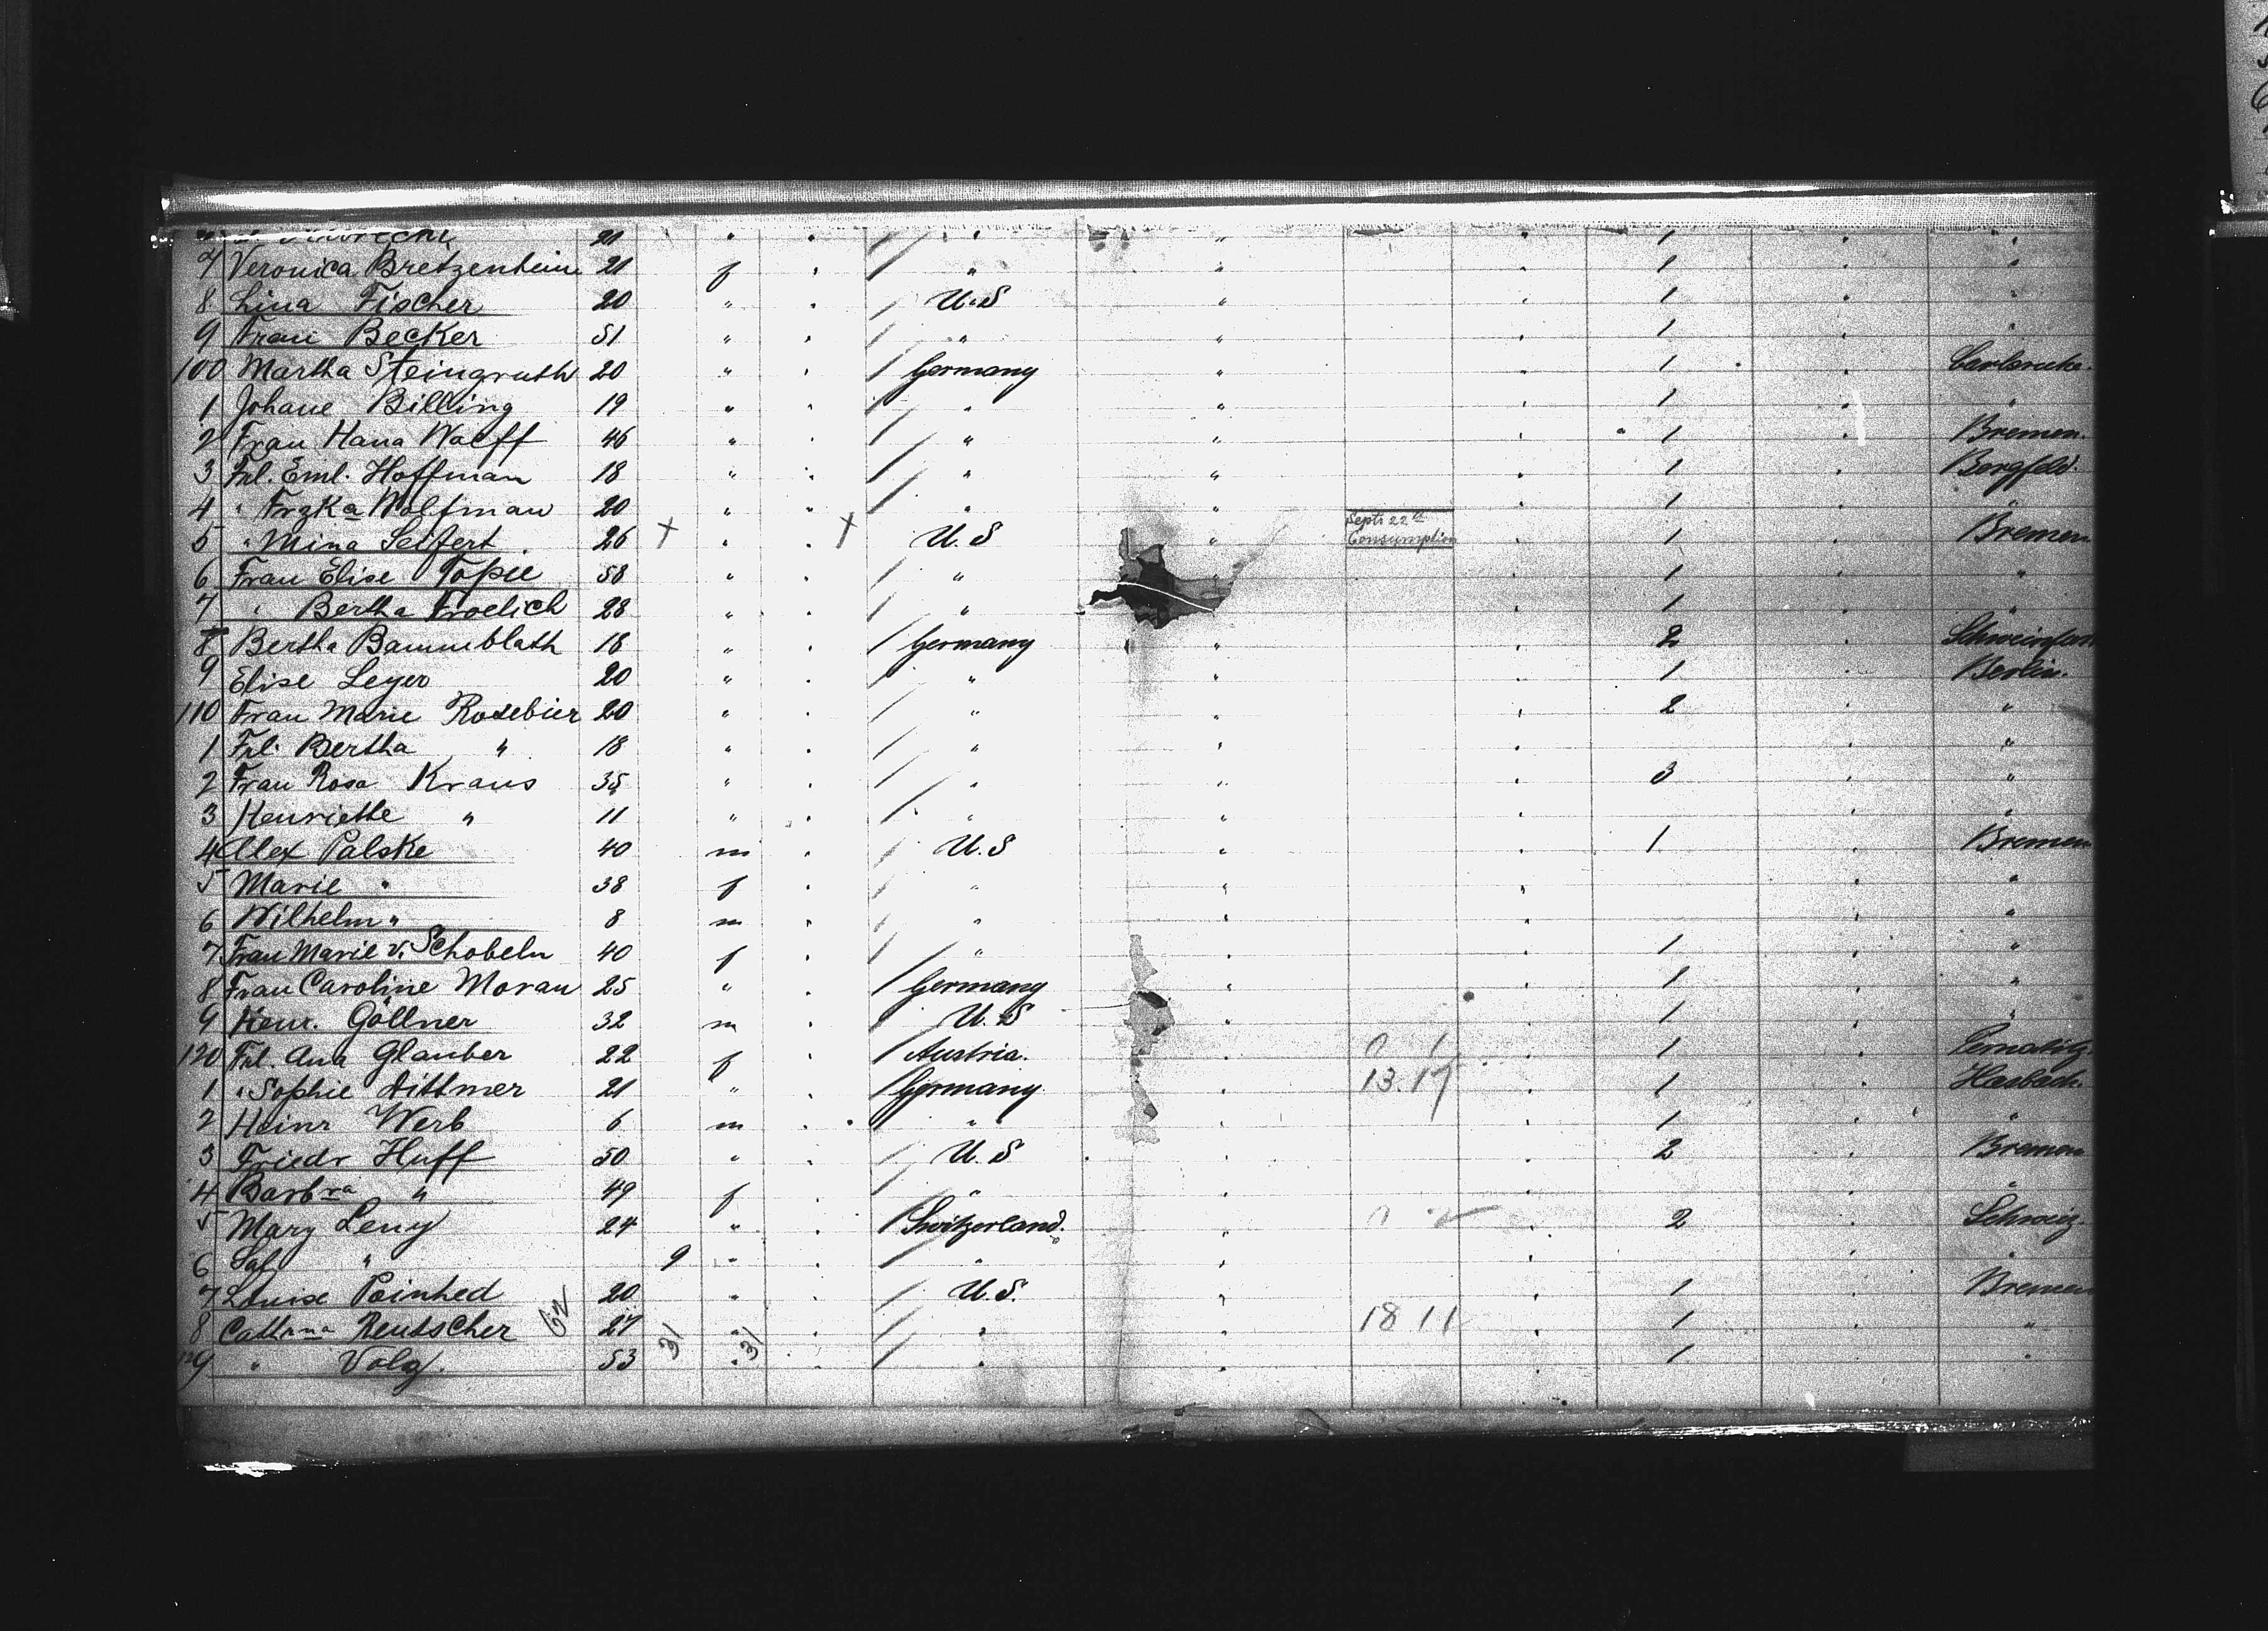 21 " " 1
7 Veronica Bretzenheim 21 f " " " 1 "
8 Lina Fischer 20 " U.S " 1 "
9 Frau Becker 51 " " " 1 "
100 Martha Steingruth 20 " Germany " 1 Carlsruhe.
1 Johane Billing 19 " " " 1 "
2 Frau Hana Wolff 46 " " " 1 Bremen.
3 Frl. Eml. Hoffman 18 " " " 1 Bergfeld.
4 " Frzka Wolfman 20 " " " 1 "
5 " Mina Seifert 26 + " + U.S " Sept 22d Consumption 1 Bremen
6 Frau Elise Topie 58 " " " 1 "
7 " Bertha Froelich 28 " " 1 "
8 Bertha Bammblath 18 " Germany " 2
9 Elise Leyer 20 " " " 1 Berlin.
110 Frau Marie Rosebier 20 " " " 2 "
1 Frl. Bertha " 18 " " " "
2 Frau Rosa Kraus 35 " " " 3 "
3 Henriette " 11 " " " "
4 Alex Palske 40 m U.S " 1 Bremen
5 Marie " 38 f " " "
6 Wilhelm " 8 m " " "
7 Frau Marie v. Schobeln 40 f " " 1 "
8 Frau Caroline Moran 25 " Germany " 1 "
9 Henr. Göllner 32 m U.S " 1 "
120 Frl. Ana Glauber 22 f Austria. " 1
1 " Sophie Dittmer 21 " Germany " 13.17 1 Hasbach.
2 Heinr Werb 6 m " " 1 "
3 Friedr Huff 50 " U.S " 2 Bremen
4 Barbra " 49 f " " "
5 Mary Leny 24 " Switzerland. " 2 Schweiz.
6 " 9 " " " "
7 Louise Poinhed 20 " U.S. " 1 Bremen
8 Cathna Reutscher 62 27 31 " 31 " " 18 11 1 "
129 " Volg. 53 " " " 1 "